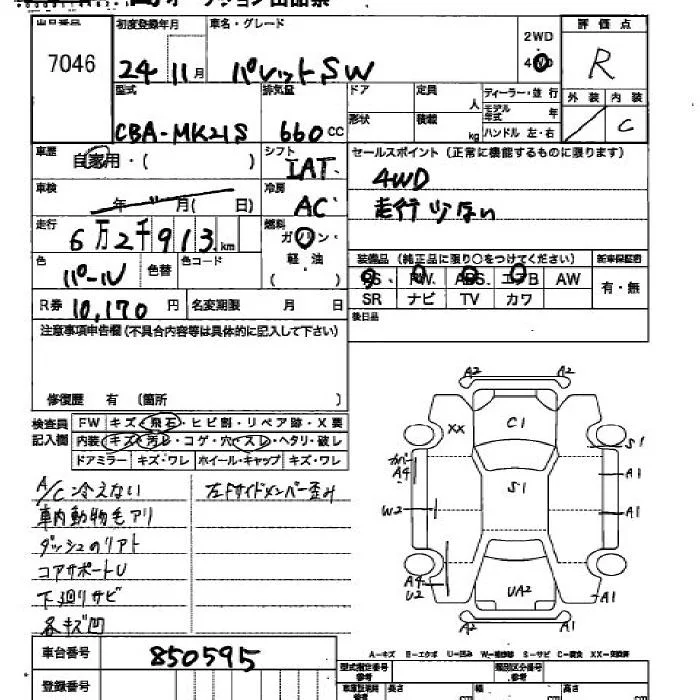 オークション出品票
出品番号 初度登録年月 車名・グレード 2WD 4WD 評価点
7046 24 11月 パレットSW R
型式 排気量 ドア 定員 人 ディーラー・並行 外装 内装
CBA-MK21S 660CC 形状 積載 kg モデル年式 年 ハンドル 左・右 C
車歴 自家用・( ) シフト IAT セールスポイント(正常に機能するものに限ります)
車検 年 月( 日) 冷房 AC 4WD
走行少ない
走行 6万2千913km 燃料 ガソリン・軽油 ( )
装備品(純正品に限り○をつけてください) 新車保証書
色 パール 色替 色コード
SS PW ABS エアB AW 有・無
SR ナビ TV カワ
R券 10,170円 名変期限 月 日 後日品
注意事項申告欄(不具合内容等は具体的に記入して下さい)
修復歴 有 (箇所 )
検査員記入欄 FW キズ・飛石・ヒビ割・リペア跡・X要
内装 キズ・汚レ・コゲ・穴・スレ・ヘタリ・破レ
ドアミラー キズ・ワレ ホイール・キャップ キズ・ワレ
A/C冷えない 左Fサイドメンバー歪み
車内動物毛アリ
ダッシュのリアト
コアサポートU
下廻リサビ
各キズ凹
A2 A2
XX C1
カバー A4 S1
S1 A1
W2 A1
A4 U2 UA2 A1
A2 A2
A-キズ E-エクボ U-凹み W-補修跡 S-サビ C-腐食 XX-交換済
車台番号 850595 型式指定番号 参考 類別区分番号 参考
登録番号 長さ cm 幅 cm 高さ cm